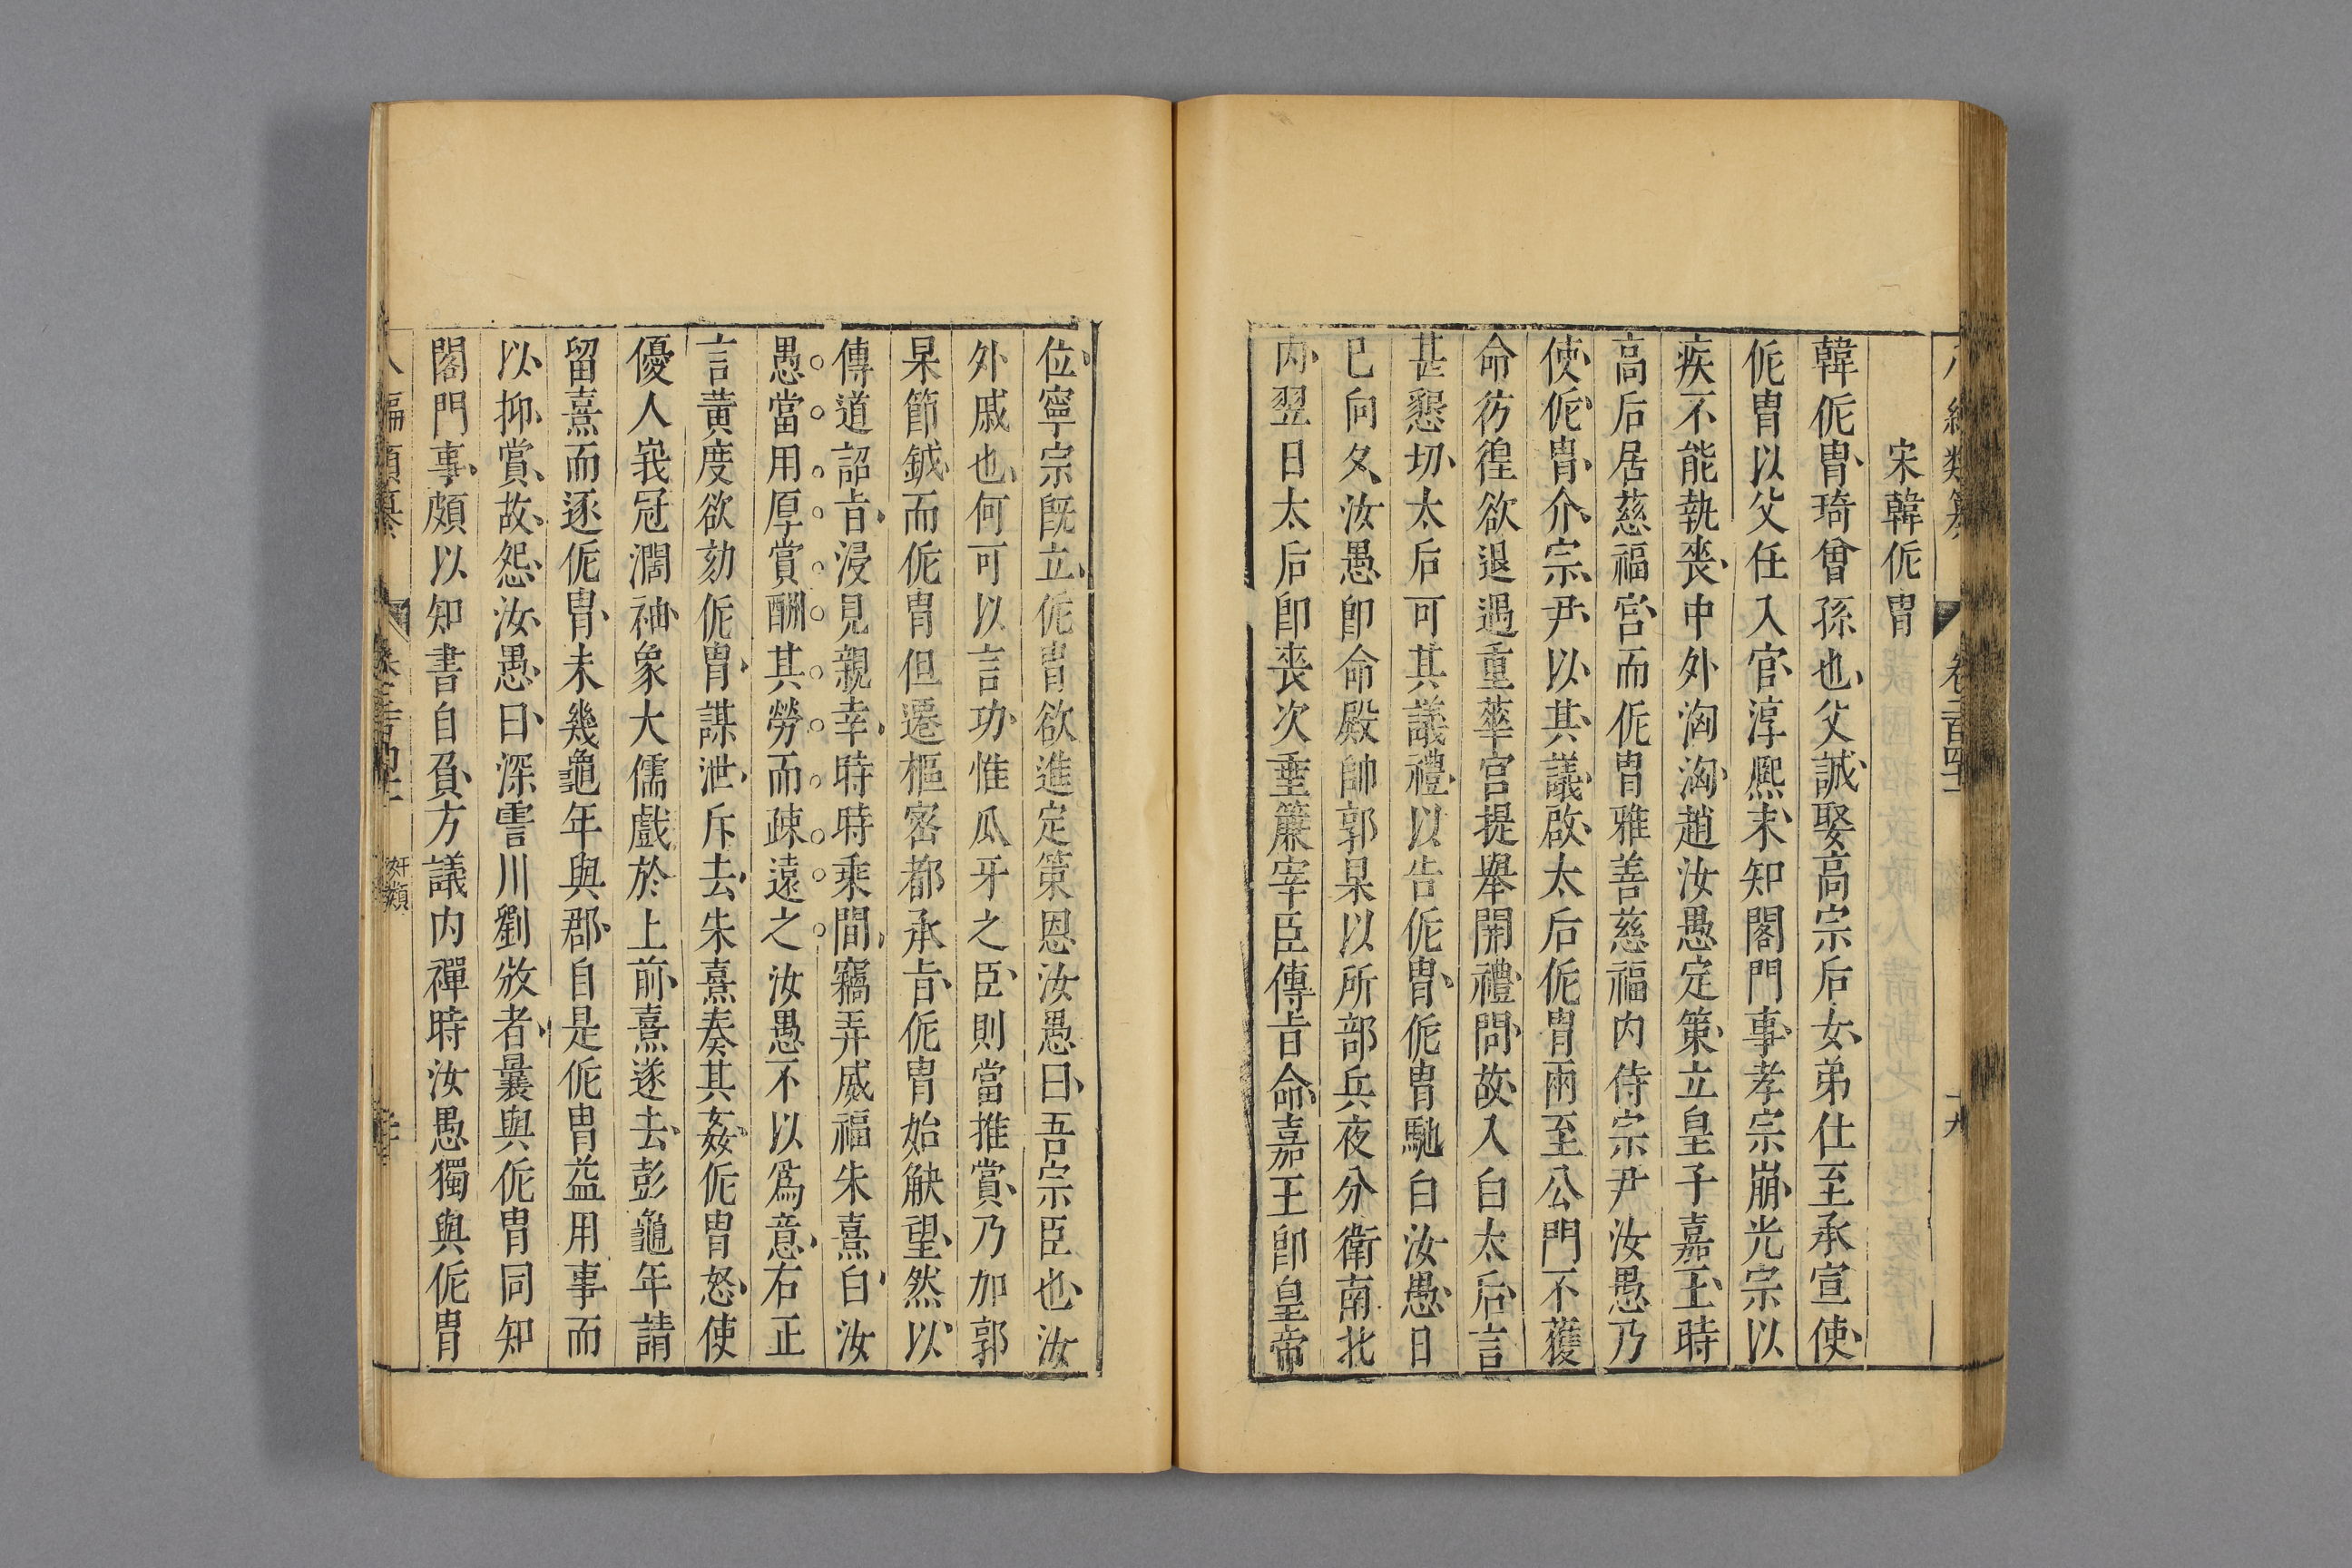 宋韓侂胄
韓侂胄琦曾孫也父誠娶高宗后女弟仕至承宣使
侂胄以父任入官淳熙末知閤門事孝宗崩光宗以
疾不能執喪中外洶洶趙汝愚定策立皇子嘉王時
高后居慈福宫而侂胄雅善慈福内侍宗尹汝愚乃
使侂胄介宗尹以其議啟太后侂胄兩至公門不獲
命彷徨欲退遇重華宫提舉開禮問故入白太后言
甚懇切太后可其議禮以告侂胄侂胄馳白汝愚日
已向夂汝愚即命殿帥郭杲以所部兵夜分衛南北
内翌日太后即喪次垂簾宰臣傳旨命嘉王即皇帝
位寧宗既立侂胄欲進定策恩汝愚曰吾宗臣也汝
外戚也何可以言功惟瓜牙之臣則當推賞乃加郭
杲節鉞而侂胄但遷樞密都承旨侂胄始觖望然以
傳道詔旨浸見親幸時時乘間竊弄威福朱熹白汝
愚當用厚賞酬其勞而疎遠之汝愚不以爲意右正
言黄度欲劾侂胄謀泄斥去朱熹奏其姦侂胄怒使
優人峩冠濶袖象大儒戲於上前熹遂去彭龜年請
留熹而逐侂胄未幾龜年與郡自是侂胄益用事而
以抑賞故怨汝愚曰深霅川劉攽者曩與侂胄同知
閤門事頗以知書自負方議内禪時汝愚獨與侂胄
奸類